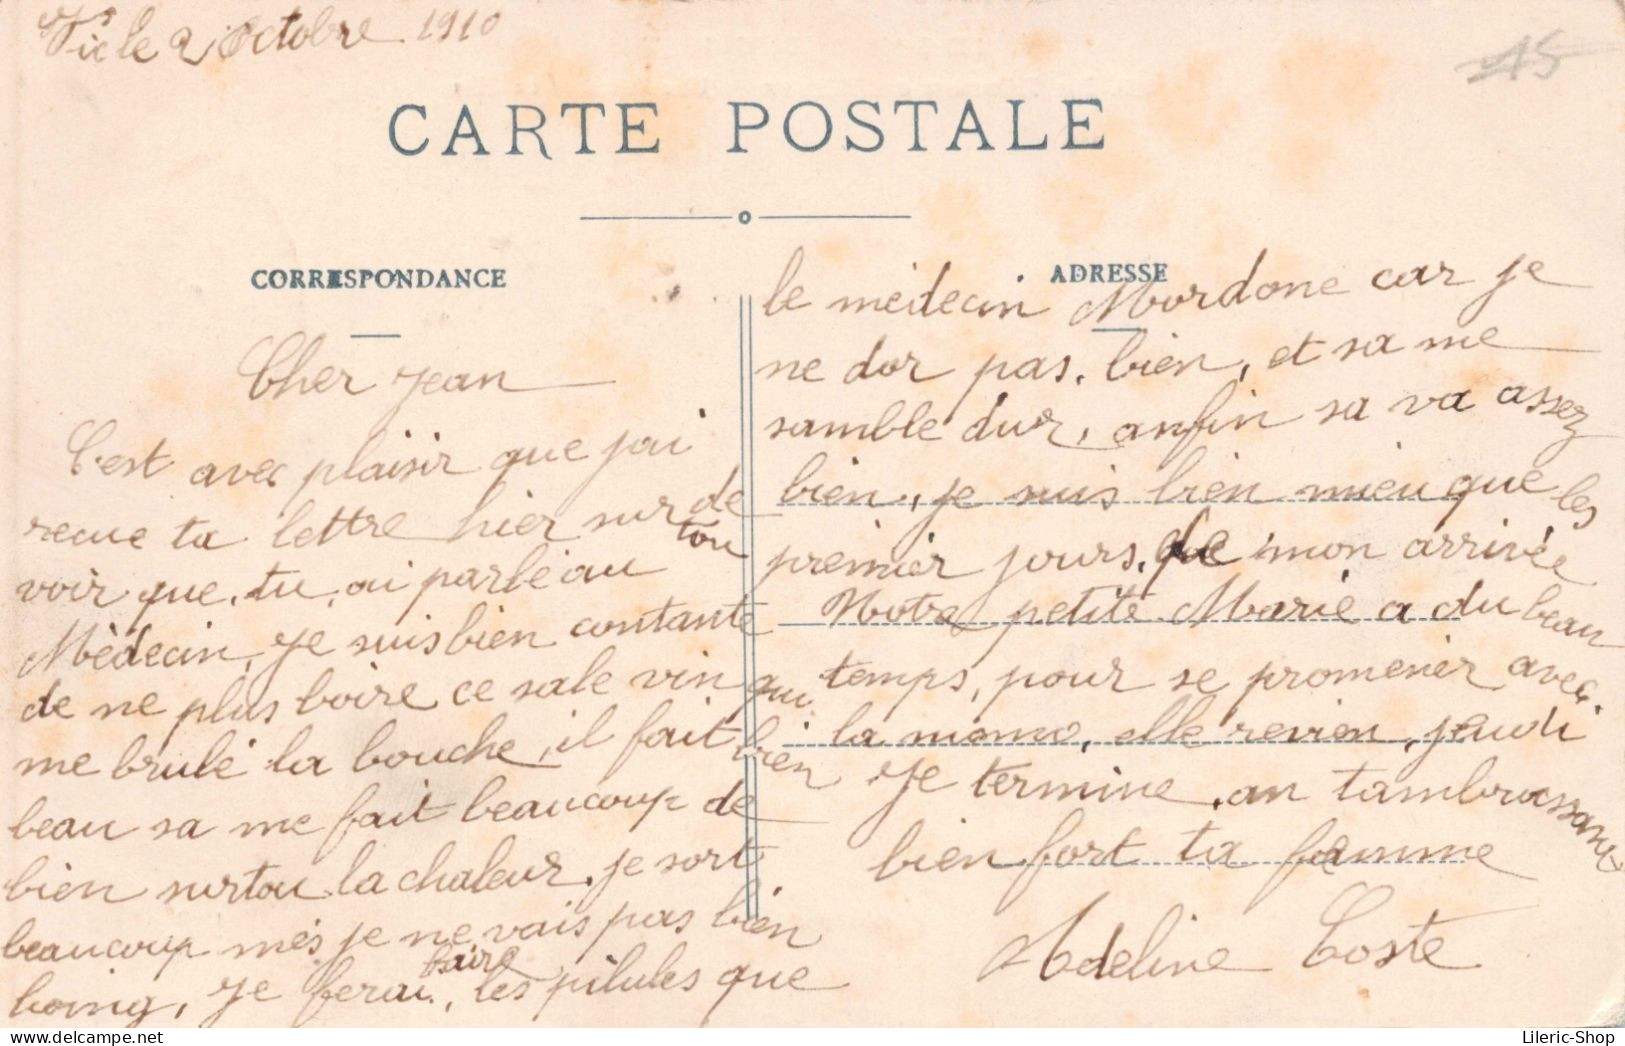 Vic le 2 Octobre 1910
15
CARTE POSTALE
CORRESPONDANCE
Cher Jean
C'est avec plaisir que jai
recue ta lettre hier surtou de
voir que, tu, ai parlé au
Mèdecin, Je suis bien contante
de ne plus boire ce sale vin qui
me brulé la bouche, il fait bien
beau sa me fait beaucoup de
bien surtou la chaleur, je sort
beaucoup mes je ne vais pas bien
loing, Je ferai faire, les pilules que
ADRESSE
le médecin Mordone car je
ne dor pas, bien, et sa me
samble dur, anfin sa va assez
bien, je suis bien mieu que les
premier jours, de mon arrivée
Notre petite Marie a du beau
temps, pour se promener avec
la meme, elle revien, jeudi
Je termine, an tambrassant
bien fort ta famme
Adeline Coste
Lileric-Shop